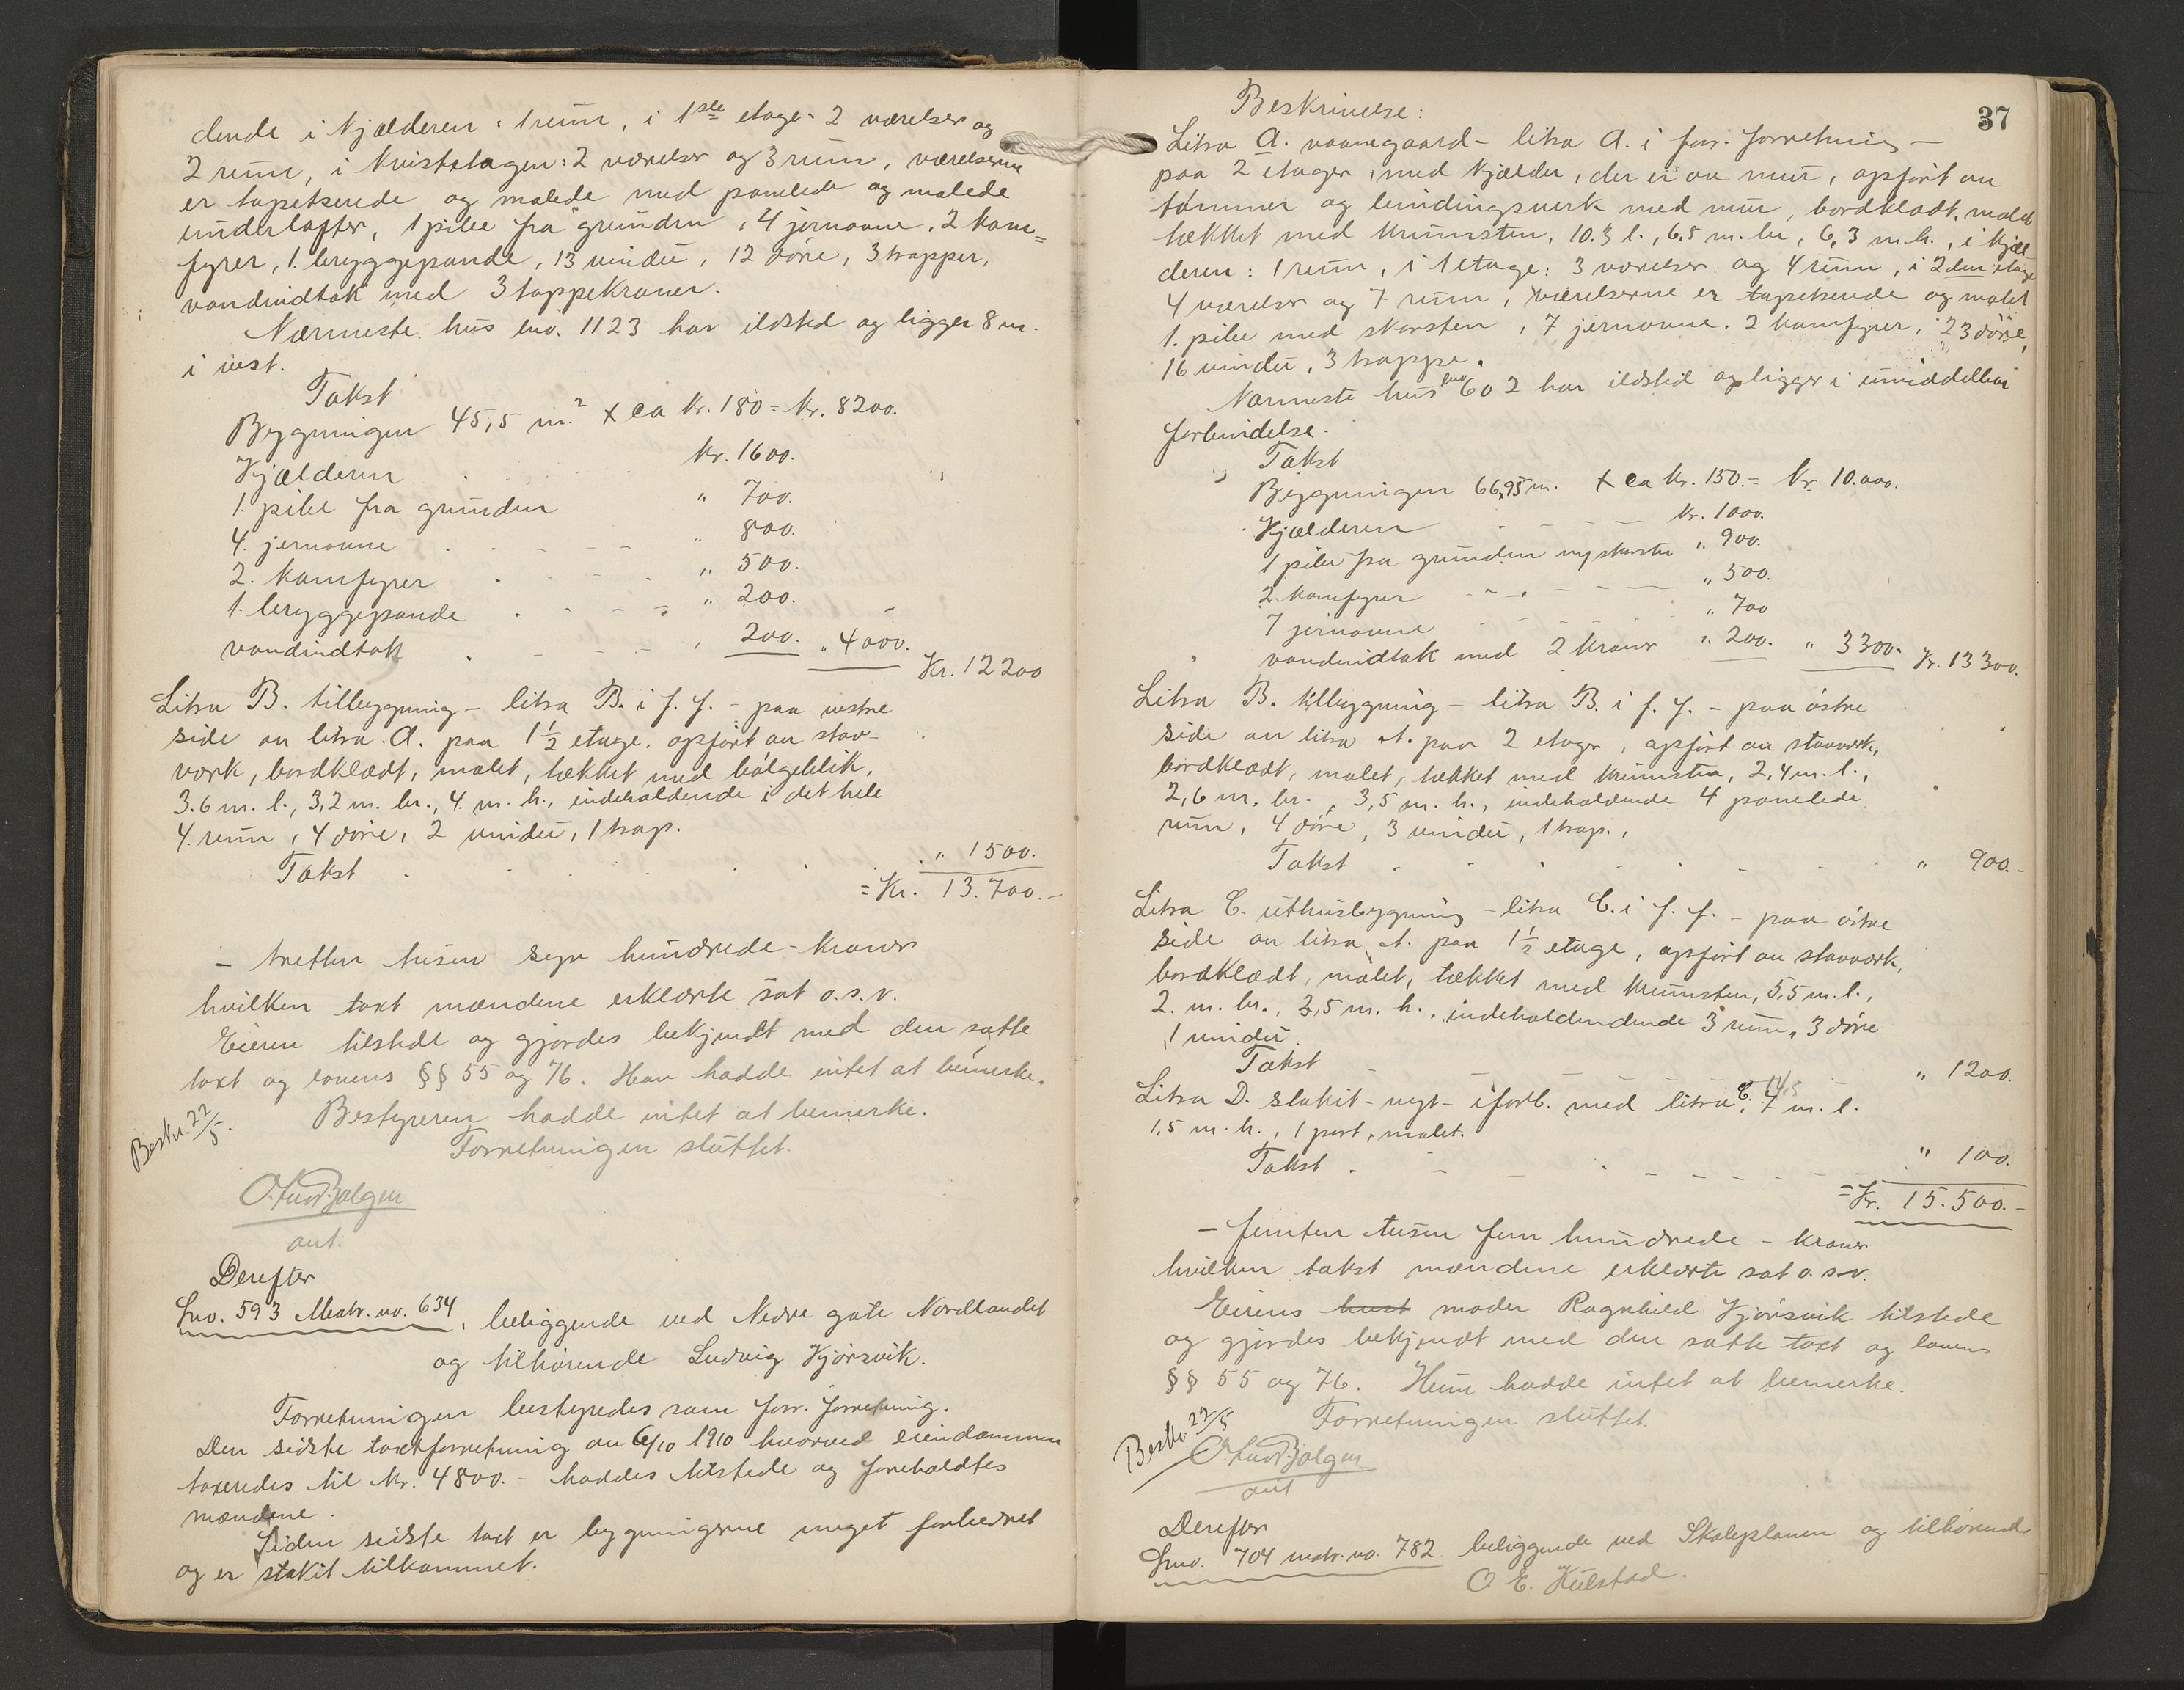 dende i kjælderen: 1 rum, i 1ste etage: 2 værelser og
2 rum, i kvistetagen: 2 værelser og 3 rum, værelserne
er tapetserede og malede med panelede og malede
underlofter, 1 pibe fra grunden, 4 jernovne, 2 kom=
fyrer, 1 bryggepande, 13 vinduer, 12 döre, 3 trapper,
vandindtak med 3 tappekraner.
Nærmeste hus lno. 1123 har ildsted og ligger 8 m.
i vest.
Takst
Bygningen 45,5 m.² x ca kr. 180 = kr. 8200.
Kjælderen kr. 1600.
1. pibe fra grunden " 700.
4. jernovne " 800.
2. komfyrer " 500.
1. bryggepande " 200.
vandindtak " 200. " 4000.
Kr. 12200
Litra B. tilbygning - litra B. i f. f. - paa vestre
side av litra A. paa 1½ etage, opfört av stav-
værk, bordklædt, malet, tækket med bölgeblik,
3.6 m. l., 3,2 m. br., 4. m. h., indeholdende i det hele
4. rum, 4 döre, 2 vinduer, 1 trap.
Takst " 1500.
= Kr. 13.700.-
- tretten tusen syv hundrede - kroner
hvilken taxt mændene erklærte sat o.s.v.
Eieren tilstede og gjordes bekjendt med den satte
taxt og lovens §§ 55 og 76. Han hadde intet at bemerke.
Bestyreren hadde intet at bemerke.
Bestr. 22/5.
Forretningen sluttet.
aut.
Derefter
Lno. 593 Matr. no. 634, beliggende ved Nedre gate Nordlandet
og tilhörende Ludvig Kjörsvik.
Forretningen bestyredes som forr. forretning.
Den sidste taxtforretning av 6/10 1910 hvorved eiendommen
taxeredes til kr. 4800.- haddes tilstede og foreholdtes
mændene.
Siden sidste taxt er bygningerne meget forbedret
og er stakit tilkommet.
37
Beskrivelse:
Litra A. vaanegaard - litra A. i forr. forretning -
paa 2 etager, med kjælder, der er av mur, opfört av
tömmer og bindingsverk med mur, bordklædt, malet
tækket med krumsten, 10.3 l., 6,5 m. br, 6,3 m. h., i kjæl
deren: 1 rum, i 1 etage: 3 værelser og 4 rum, i 2den etage
4 værelser og 7 rum, værelserne er tapetserede og malet
1. pibe med skorsten, 7 jernovne, 2 komfyrer, 23 döre,
16 vinduer, 3 trappe.
Nærmeste hus lno 602 har ildsted og ligger i umiddelbar
forbindelse.
Takst
Bygningen 66,95 m. x ca kr. 150.- kr. 10.000.
Kjælderen kr. 1000.
1 pibe fra grunden ny skorsten " 900.
2 komfyrer " 500.
7 jernovne " 700
vandindtak med 2 kraner " 200. " 3300. Kr. 13300.
Litra B. tilbygning - litra B. i f. f. - paa östre
side av litra A. paa 2 etager, opfört av stavverk,
bordklædt, malet, tækket med krumsten, 2,4 m. l.,
2,6 m. br., 3,5 m. h., indeholdende 4 panelede
rum, 4 döre, 3 vinduer, 1 trap.,
Takst " 900.-
Litra C. uthusbygning - litra C. i f. f. - paa östre
side av litra A. paa 1½ etage, opfört av stavværk,
bordklædt, malet, tækket med krumsten, 5,5 m. l.,
2. m. br., 3,5 m. h., indeholdendende 3 rum, 3 döre
1 vindu.
Takst " 1200.
Litra D. stakit - nyt - i forb. med litra C. m. l.
1,5 m. h., 1 port, malet.
Takst " 100.
= Kr. 15.500.-
- femten tusen fem hundrede - kroner
hvilken takst mændene erklærte sat o.s.v.
Eierens hust moder Ragnhild Kjörsvik tilstede
og gjordes bekjendt med den satte taxt og lovens
§§ 55 og 76. Hun hadde intet at bemerke.
Forretningen sluttet.
Bestr. 22/5
aut
Derefter
Lno. 704 matr. no. 782 beliggende ved Skoleplanen og tilhörende
O E. Hulstad.